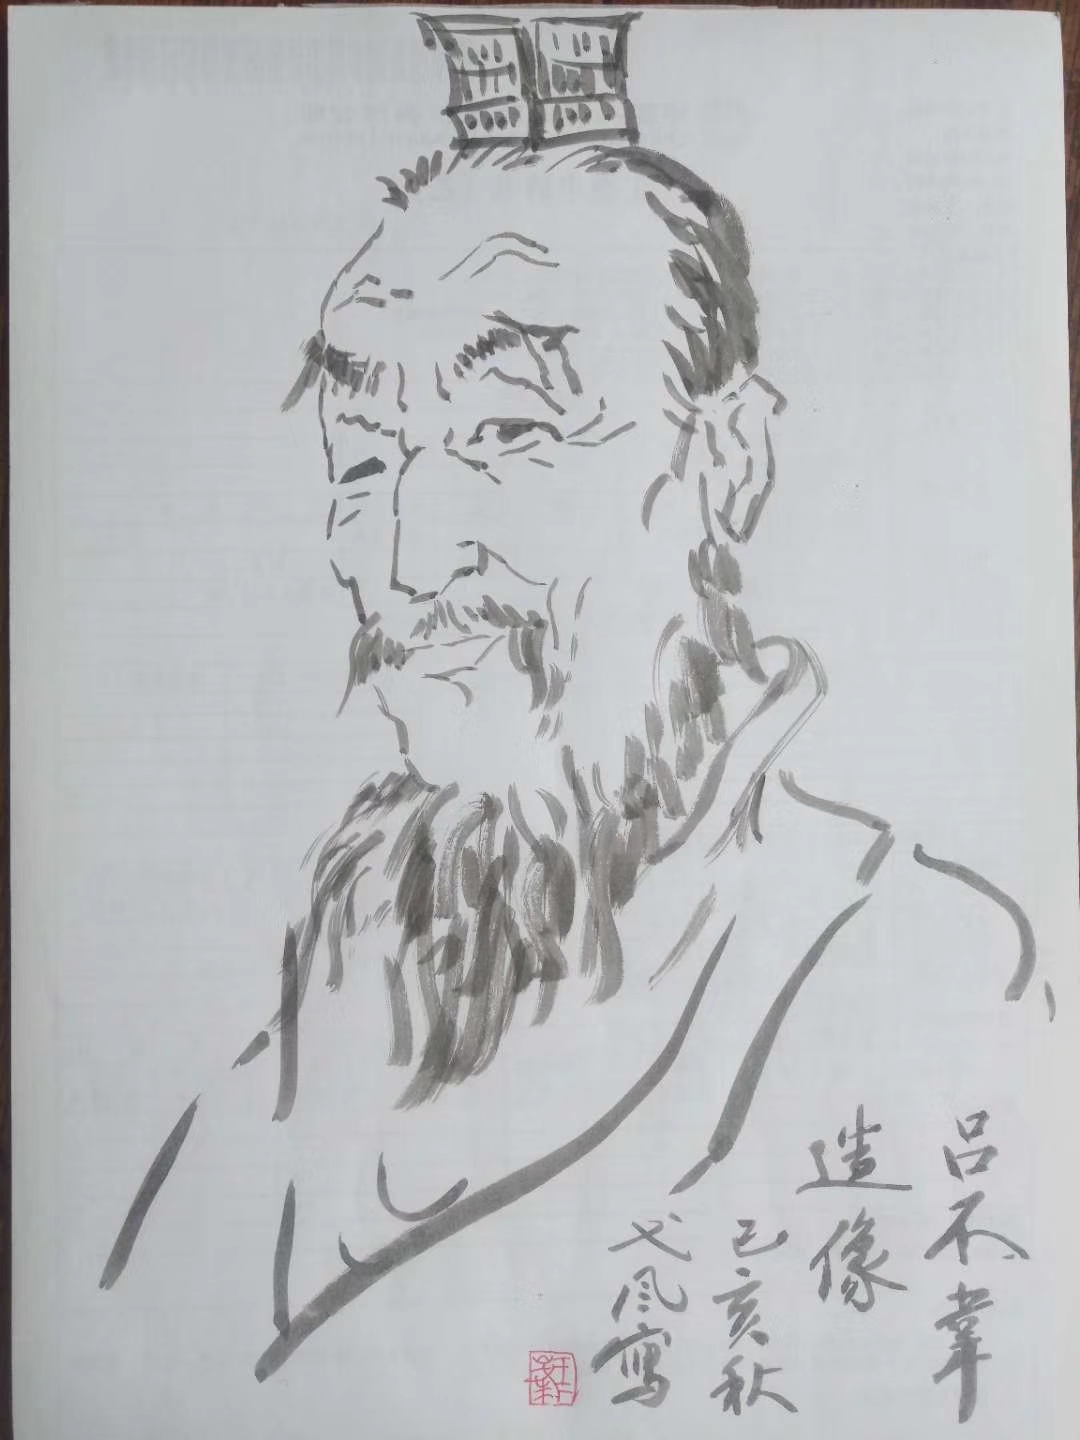 吕不韋
造像
己亥秋
弋风寫